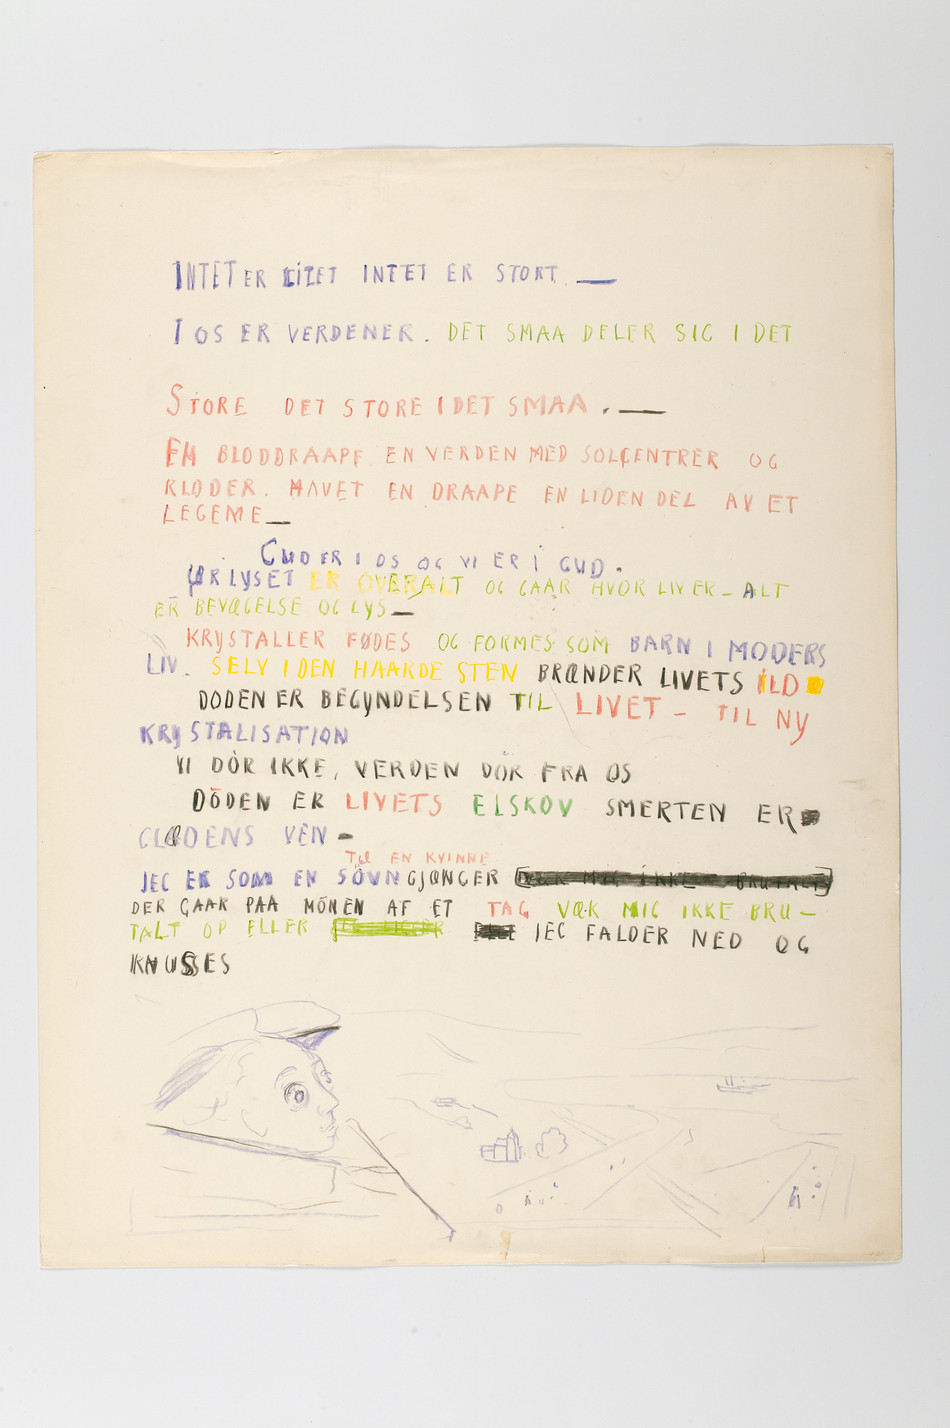 INTET ER LITET INTET ER STORT. —
I OS ER VERDENER. DET SMAA DELER SIG I DET
STORE DET STORE I DET SMAA. —
EN BLODDRAAPE EN VERDEN MED SOLCENTRER OG
KLODER. HAVET EN DRAAPE EN LIDEN DEL AV ET
LEGEME —
GUD ER I OS OG VI ER I GUD.
URLYSET ER OVERALT OG GAAR HVOR LIV ER — ALT
ER BEVÆGELSE OG LYS —
KRYSTALLER FØDES OG FORMES SOM BARN I MODERS
LIV. SELV I DEN HAARDE STEN BRÆNDER LIVETS ILD
DÖDEN ER BEGYNDELSEN TIL LIVET — TIL NY
KRYSTALISATION
VI DÖR IKKE, VERDEN DÖR FRA OS
DÖDEN ER LIVETS ELSKOV SMERTEN ER
GLÆDENS VEN —
TIL EN KVINNE
JEG ER SOM EN SÖVNGJÆNGER VÆK MIG IKKE BRUTALT
DER GAAR PAA MÖNEN AF ET TAG VÆK MIG IKKE BRU—
TALT OP ELLER JEG FALDER NED OG
KNUSSES